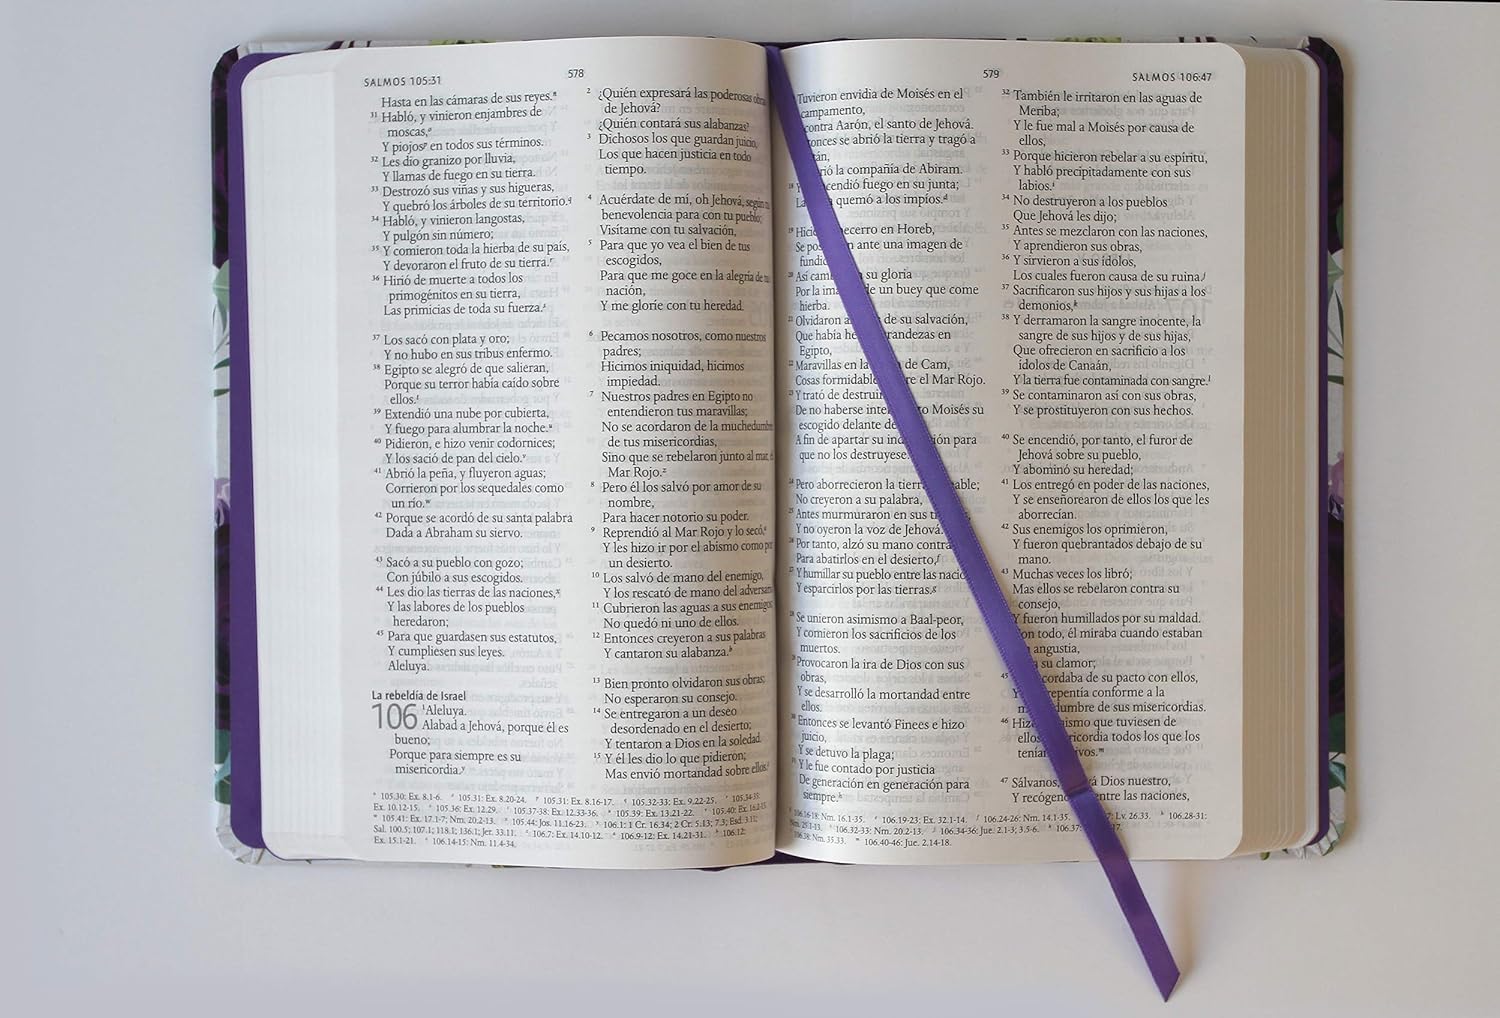 SALMOS 105:31
578
Hasta en las cámaras de sus reyes.ⁿ
31 Habló, y vinieron enjambres de
moscas,ᵒ
Y piojosᵖ en todos sus términos.
32 Les dio granizo por lluvia,
Y llamas de fuego en su tierra.
33 Destrozó sus viñas y sus higueras,
Y quebró los árboles de su territorio.q
34 Habló, y vinieron langostas,
Y pulgón sin número;
35 Y comieron toda la hierba de su país,
Y devoraron el fruto de su tierra.ʳ
36 Hirió de muerte a todos los
primogénitos en su tierra,
Las primicias de toda su fuerza.ˢ
37 Los sacó con plata y oro;
Y no hubo en sus tribus enfermo.
38 Egipto se alegró de que salieran,
Porque su terror había caído sobre
ellos.ᵗ
39 Extendió una nube por cubierta,
Y fuego para alumbrar la noche.ᵘ
40 Pidieron, e hizo venir codornices;
Y los sació de pan del cielo.ᵛ
41 Abrió la peña, y fluyeron aguas;
Corrieron por los sequedales como
un río.ʷ
42 Porque se acordó de su santa palabra
Dada a Abraham su siervo.
43 Sacó a su pueblo con gozo;
Con júbilo a sus escogidos.
44 Les dio las tierras de las naciones,ˣ
Y las labores de los pueblos
heredaron;
45 Para que guardasen sus estatutos,
Y cumpliesen sus leyes.
Aleluya.
La rebeldía de Israel
106 1 Aleluya.
Alabad a Jehová, porque él es
bueno;
Porque para siempre es su
misericordia.ʸ
2 ¿Quién expresará las poderosas obras
de Jehová?
¿Quién contará sus alabanzas?
3 Dichosos los que guardan juicio,
Los que hacen justicia en todo
tiempo.
4 Acuérdate de mí, oh Jehová, según tu
benevolencia para con tu pueblo;
Visítame con tu salvación,
5 Para que yo vea el bien de tus
escogidos,
Para que me goce en la alegría de tu
nación,
Y me gloríe con tu heredad.
6 Pecamos nosotros, como nuestros
padres;
Hicimos iniquidad, hicimos
impiedad.
7 Nuestros padres en Egipto no
entendieron tus maravillas;
No se acordaron de la muchedumbre
de tus misericordias,
Sino que se rebelaron junto al mar, el
Mar Rojo.ᶻ
8 Pero él los salvó por amor de su
nombre,
Para hacer notorio su poder.
9 Reprendió al Mar Rojo y lo secó,ᵃ
Y les hizo ir por el abismo como por
un desierto.
10 Los salvó de mano del enemigo,
Y los rescató de mano del adversario.
11 Cubrieron las aguas a sus enemigos;
No quedó ni uno de ellos.
12 Entonces creyeron a sus palabras
Y cantaron su alabanza.ᵇ
13 Bien pronto olvidaron sus obras;
No esperaron su consejo.
14 Se entregaron a un deseo
desordenado en el desierto;
Y tentaron a Dios en la soledad.
15 Y él les dio lo que pidieron;
Mas envió mortandad sobre ellos.
ⁿ 105.30: Ex. 8.1-6. ᵒ 105.31: Ex. 8.20-24. ᵖ 105.31: Ex. 8.16-17. q 105.32-33: Ex. 9.22-25. ʳ 105.34-35:
Ex. 10.12-15. ˢ 105.36: Ex. 12.29. ᵗ 105.37-38: Ex. 12.33-36. ᵘ 105.39: Ex. 13.21-22. ᵛ 105.40: Ex. 16.2-15.
ʷ 105.41: Ex. 17.1-7; Nm. 20.2-13. ˣ 105.44: Jos. 11.16-23. ʸ 106.1: 1 Cr. 16.34; 2 Cr. 5.13; 7.3; Esd. 3.11;
Sal. 100.5; 107.1; 118.1; 136.1; Jer. 33.11. ᶻ 106.7: Ex. 14.10-12. ᵃ 106.9-12: Ex. 14.21-31. ᵇ 106.12:
Ex. 15.1-21. 106.14-15: Nm. 11.4-34.
579
SALMOS 106:47
Tuvieron envidia de Moisés en el
campamento,
contra Aarón, el santo de Jehová.
se abrió la tierra y tragó a
la compañía de Abiram.
18 Y fuego en su junta;
La quemó a los impíos.ᵈ
19 becerro en Horeb,
Se ante una imagen de
20 Así su gloria
Por la de un buey que como
hierba.
21 Olvidaron de su salvación,
Que había grandezas en
Egipto,
22 Maravillas en la de Cam,
Cosas el Mar Rojo.
23 Y trató de
De no haberse Moisés su
escogido delante de
A fin de apartar su para
que no los destruyese.
24 Pero aborrecieron la
No creyeron a su palabra,
25 Antes murmuraron en sus
Y no oyeron la voz de Jehová.
26 Por tanto, alzó su mano contra
Para abatirlos en el desierto,ᶠ
27 Y humillar su pueblo entre las
Y esparcirlos por las tierras.ᵍ
28 Se unieron asimismo a Baal-peor,
Y comieron los sacrificios de los
muertos.
29 Provocaron la ira de Dios con sus
obras,
Y se desarrolló la mortandad entre
ellos.
30 Entonces se levantó Finees e hizo
juicio,
Y se detuvo la plaga;
31 Y le fue contado por justicia
De generación en generación para
siempre.ʰ
32 También le irritaron en las aguas de
Meriba;
Y le fue mal a Moisés por causa de
ellos,
33 Porque hicieron rebelar a su espíritu,
Y habló precipitadamente con sus
labios.ⁱ
34 No destruyeron a los pueblos
Que Jehová les dijo;
35 Antes se mezclaron con las naciones,
Y aprendieron sus obras,
36 Y sirvieron a sus ídolos,
Los cuales fueron causa de su ruina.ʲ
37 Sacrificaron sus hijos y sus hijas a los
demonios,ᵏ
38 Y derramaron la sangre inocente, la
sangre de sus hijos y de sus hijas,
Que ofrecieron en sacrificio a los
ídolos de Canaán,
Y la tierra fue contaminada con sangre.ˡ
39 Se contaminaron así con sus obras,
Y se prostituyeron con sus hechos.
40 Se encendió, por tanto, el furor de
Jehová sobre su pueblo,
Y abominó su heredad;
41 Los entregó en poder de las naciones,
Y se enseñorearon de ellos los que les
aborrecían.
42 Sus enemigos los oprimieron,
Y fueron quebrantados debajo de su
mano.
43 Muchas veces los libró;
Mas ellos se rebelaron contra su
consejo,
Y fueron humillados por su maldad.
Con todo, él miraba cuando estaban
angustia,
su clamor;
45 de su pacto con ellos,
conforme a la
de sus misericordias.
46 que tuviesen de
todos los que los
47 Sálvanos, Dios nuestro,
Y entre las naciones,
106.16-18: Nm. 16.1-35. 106.19-23: Ex. 32.1-14. 106.24-26: Nm. 14.1-35. Lv. 26.33. 106.28-31:
Nm. 25.1-13. 106.32-33: Nm. 20.2-13. 106.34-36: Jue. 2.1-3; 3.5-6.
106.38: Nm. 35.33. 106.40-46: Jue. 2.14-18.